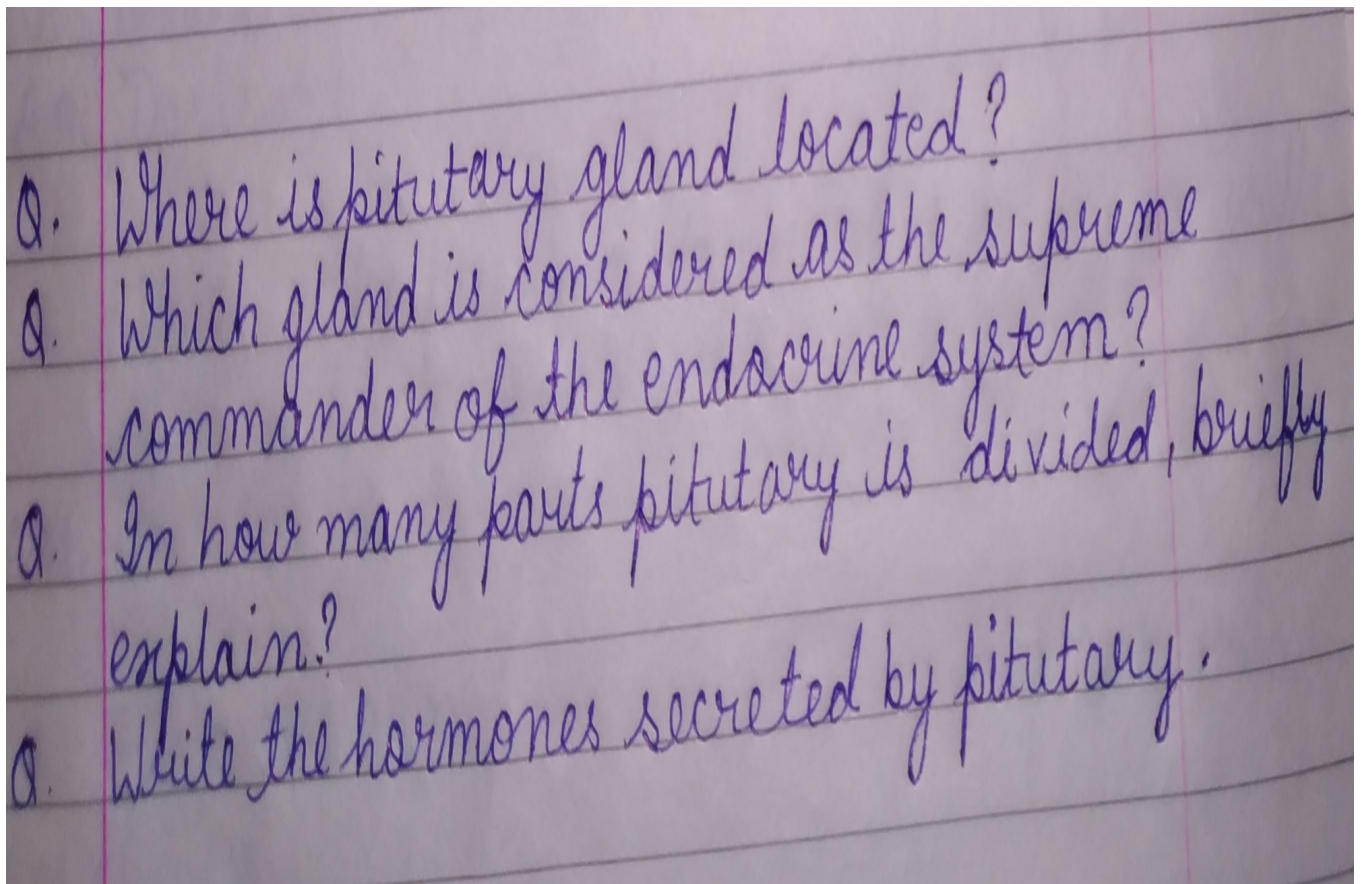 Q. Where is pitutary gland located?
Q. Which gland is considered as the supreme
commander of the endocrine system?
Q. In how many parts pitutary is divided, briefly
explain?
Q. Write the hormones secreted by pitutary.